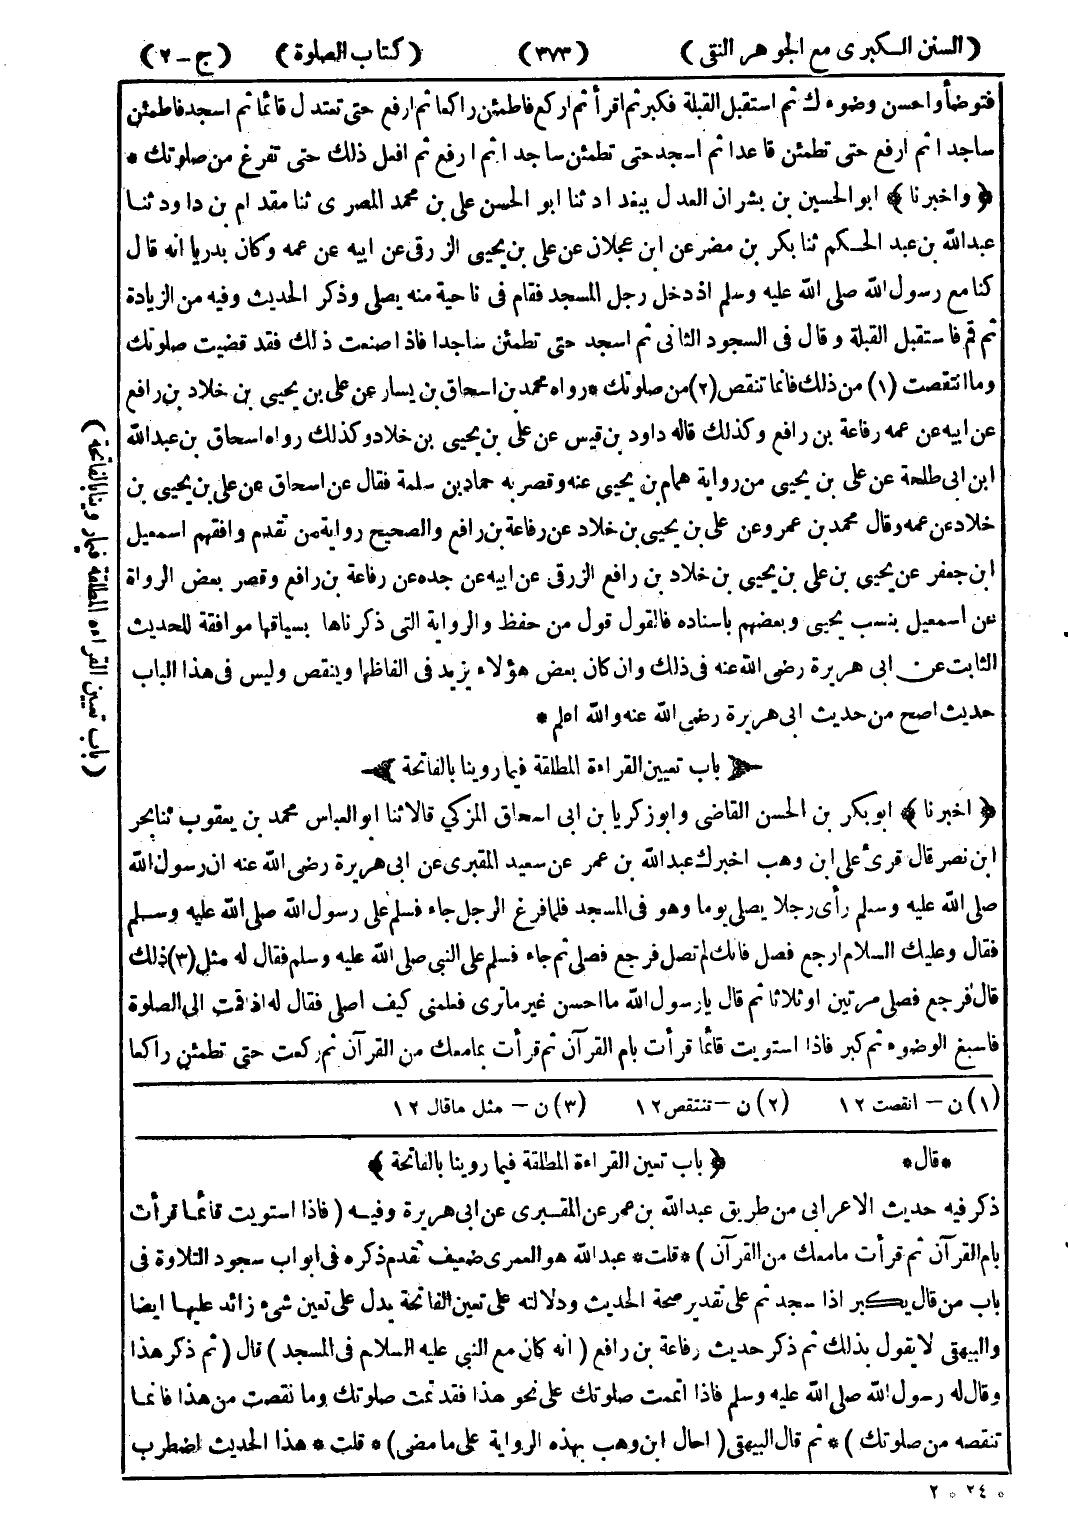 (السنن الكبرى مع الجوهر النقى) (٣٧٣) (كتاب الصلوة) (ج ـ ٢)
فتوضأ واحسن وضوءك ثم استقبل القبلة فكبر ثم اقرأ ثم اركع فاطمئن راكعا ثم ارفع حتى تعتدل قائما ثم اسجد فاطمئن
ساجدا ثم ارفع حتى تطمئن قاعدا ثم اسجد حتى تطمئن ساجدا ثم ارفع ثم افعل ذلك حتى تفرغ من صلوتك *
﴿ واخبرنا ﴾ ابو الحسين بن بشران العدل ببغداد ثنا ابو الحسن على بن محمد المصرى ثنا مقدام بن داود ثنا
عبدالله بن عبد الحكم ثنا بكر بن مضر عن ابن عجلان عن على بن يحيى الزرقى عن ابيه عن عمه وكان بدريا انه قال
كنا مع رسول الله صلى الله عليه وسلم اذ دخل رجل المسجد فقام فى ناحية منه يصلى وذكر الحديث وفيه من الزيادة
ثم قم فاستقبل القبلة وقال فى السجود الثانى ثم اسجد حتى تطمئن ساجدا فاذا صنعت ذلك فقد قضيت صلوتك
وما انتقصت (١) من ذلك فانما تنقص (٢) من صلوتك * رواه محمد بن اسحاق بن يسار عن على بن يحيى بن خلاد بن رافع
عن ابيه عن عمه رفاعة بن رافع وكذلك قاله داود بن قيس عن على بن يحيى بن خلاد وكذلك رواه اسحاق بن عبدالله
ابن ابى طلحة عن على بن يحيى من رواية همام بن يحيى عنه وقصر به حماد بن سلمة فقال عن اسحاق عن على بن يحيى بن
خلاد عن عمه وقال محمد بن عمرو عن على بن يحيى بن خلاد عن رفاعة بن رافع والصحيح رواية من تقدم وافقهم اسمعيل
ابن جعفر عن يحيى بن على بن يحيى بن خلاد بن رافع الزرقى عن ابيه عن جده عن رفاعة بن رافع وقصر بعض الرواة
عن اسمعيل بنسب يحيى وبعضهم باسناده فالقول قول من حفظ والرواية التى ذكرناها بسياقها موافقة للحديث
الثابت عن ابى هريرة رضى الله عنه فى ذلك وان كان بعض هؤلاء يزيد فى الفاظها وينقص وليس فى هذا الباب
حديث اصح من حديث ابى هريرة رضى الله عنه والله اعلم *
باب تعيين القراءة المطلقة فيما روينا بالفاتحة
﴿ اخبرنا ﴾ ابو بكر بن الحسن القاضى وابو زكريا بن ابى اسحاق المزكي قالا ثنا ابو العباس محمد بن يعقوب ثنا بحر
ابن نصر قال قرئ على ابن وهب اخبرك عبدالله بن عمر عن سعيد المقبرى عن ابى هريرة رضى الله عنه ان رسول الله
صلى الله عليه وسلم رأى رجلا يصلى يوما وهو فى المسجد فلما فرغ الرجل جاء فسلم على رسول الله صلى الله عليه وسلم
فقال وعليك السلام ارجع فصل فانك لم تصل فرجع فصلى ثم جاء فسلم على النبى صلى الله عليه وسلم فقال له مثل (٣) ذلك
قال فرجع فصلى مرتين او ثلاثا ثم قال يارسول الله ما احسن غير ما ترى فعلمنى كيف اصلى فقال له اذا قمت الى الصلوة
فاسبغ الوضوء ثم كبر فاذا استويت قائما قرأت بام القرآن ثم قرأت بما معك من القرآن ثم ركعت حتى تطمئن راكعا
(باب تعيين القراءة المطلقة فيما روينا بالفاتحة)
(١) ن ـ انقصت ١٢ (٢) ن ـ تنتقص ١٢ (٣) ن ـ مثل ماقال ١٢
*قال* ﴿ باب تعين القراءة المطلقة فيما روينا بالفاتحة ﴾
ذكر فيه حديث الاعرابى من طريق عبدالله بن عمر عن المقبرى عن ابى هريرة وفيه ( فاذا استويت قائما قرأت
بام القرآن ثم قرأت ما معك من القرآن ) * قلت * عبدالله هو العمرى ضعيف تقدم ذكره فى ابواب سجود التلاوة فى
باب من قال يكبر اذا سجد ثم على تقدير صحة الحديث ودلالته على تعين الفاتحة يدل على تعين شىء زائد عليها ايضا
والبيهقى لا يقول بذلك ثم ذكر حديث رفاعة بن رافع ( انه كان مع النبى عليه السلام فى المسجد ) قال ( ثم ذكر هذا
وقال له رسول الله صلى الله عليه وسلم فاذا اتممت صلوتك على نحو هذا فقد تمت صلوتك وما نقصت من هذا فانما
تنقصه من صلوتك ) * ثم قال البيهقى ( احال ابن وهب بهذه الرواية على ما مضى ) * قلت * هذا الحديث اضطرب
* ٢٤ * ٢